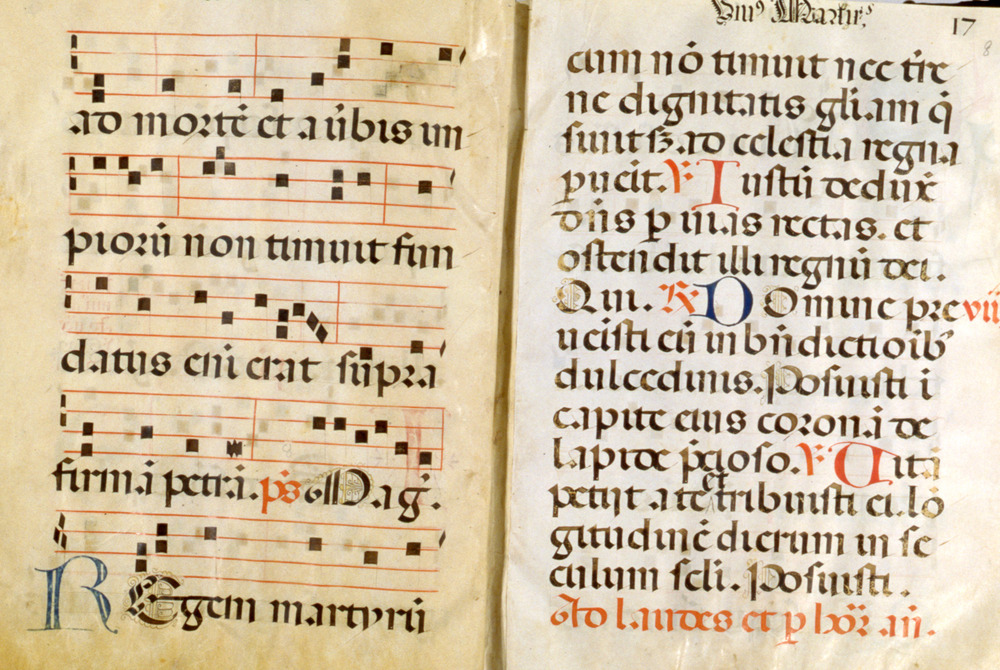 ad mortē et a ūbis im
piorū non timuit fun
datus eni erat sūpra
firmā petrā. p̄s Maḡ.
REgem martyrū
Unius Martiris
17
8
eum nō timuit nec tre
ne dignitatis gl̄iam q̄
siuit sz ad celestia regna
puēit. ℣ Iustū deduxē
dn̄s p uias rectas. et
ostendit illi regnū dei.
Qui. ℟ DOmine pre vii
uenisti eū in bn̄dictioīb
dulcedinis. Posuisti ī
capite eius coronā de
lapide p̄cioso. ℣ Uitā
petijt a te et tribuisti ei lō
gitudinē dierum in se
culum scl̄i. Posuisti.
Ad laudes et p hōr añ.